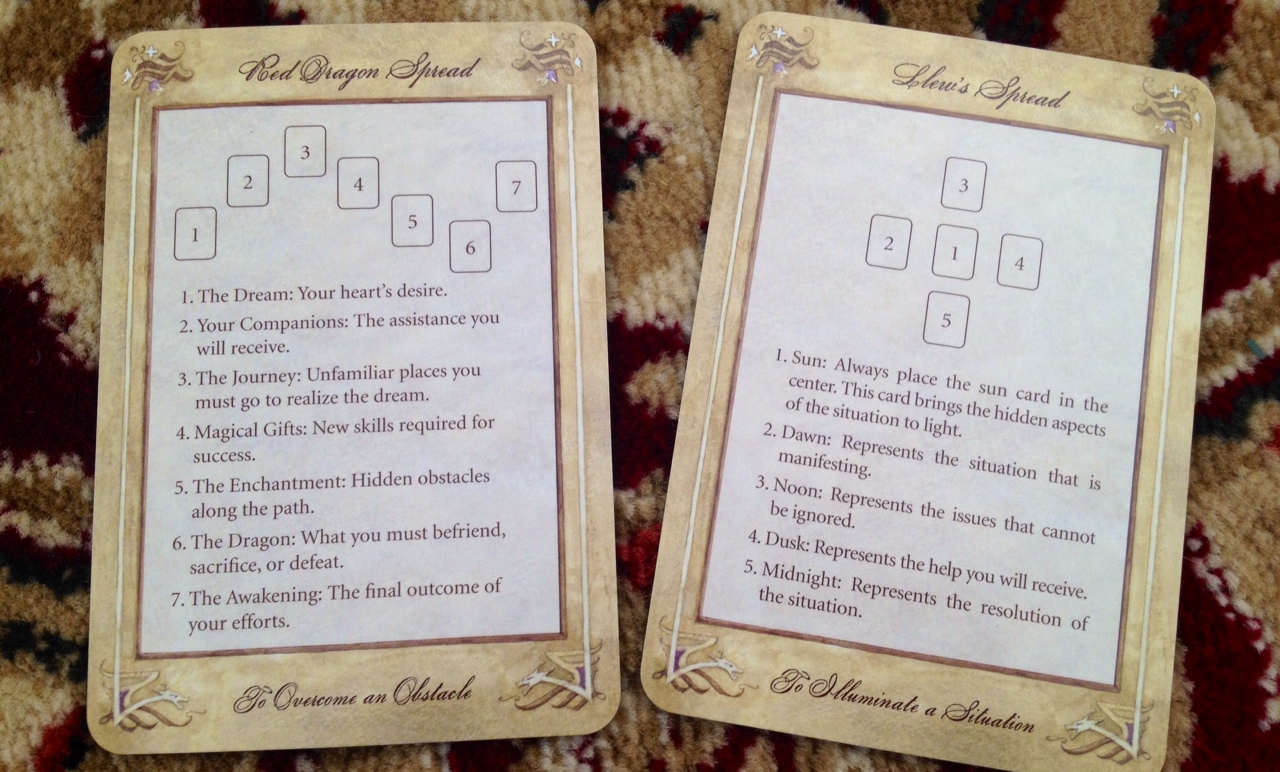 Red Dragon Spread
3
2
4
7
1
5
6
1. The Dream: Your heart's desire.
2. Your Companions: The assistance you
will receive.
3. The Journey: Unfamiliar places you
must go to realize the dream.
4. Magical Gifts: New skills required for
success.
5. The Enchantment: Hidden obstacles
along the path.
6. The Dragon: What you must befriend,
sacrifice, or defeat.
7. The Awakening: The final outcome of
your efforts.
To Overcome an Obstacle
Llew's Spread
3
2
1
4
5
1. Sun: Always place the sun card in the
center. This card brings the hidden aspects
of the situation to light.
2. Dawn: Represents the situation that is
manifesting.
3. Noon: Represents the issues that cannot
be ignored.
4. Dusk: Represents the help you will receive.
5. Midnight: Represents the resolution of
the situation.
To Illuminate a Situation